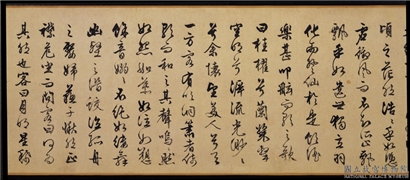 頃之茫然浩浩乎如馮
虛御風而不知其所止飄
飄乎如遺世獨立羽
化而登仙於是飲酒
樂甚叩舷而歌之歌
曰桂櫂兮蘭槳擊
空明兮泝流光渺渺
兮余懷望美人兮天
一方客有吹洞簫者倚
歌而和之其聲嗚嗚然
如怨如慕如泣如訴
餘音嫋嫋不絕如縷舞
幽壑之潛蛟泣孤舟
之嫠婦蘇子愀然正
襟危坐而問客曰何為
其然也客曰月明星稀
NATIONAL PALACE MUSEUM